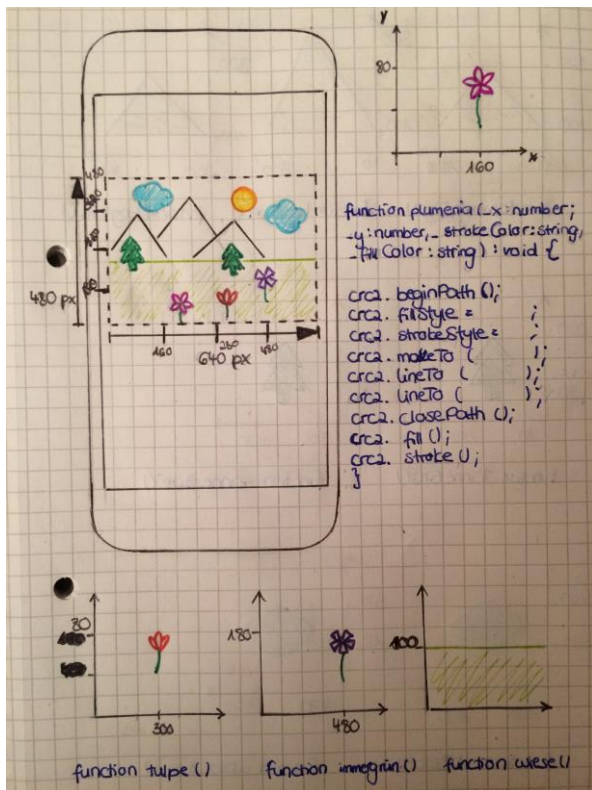 y
80
160
x
480
480 px
160
480
640 px
function plumenia (_x: number;
_y: number, _strokeColor: string,
_fillColor: string) : void {
crc2. beginPath ();
crc2. fillStyle = ;
crc2. strokeStyle = ;
crc2. moveTo ( );
crc2. lineTo ( );
crc2. lineTo ( );
crc2. closePath ();
crc2. fill ();
crc2. stroke ();
}
80
300
180
480
100
function tulpe ()
function immegrün ()
function wiese ()